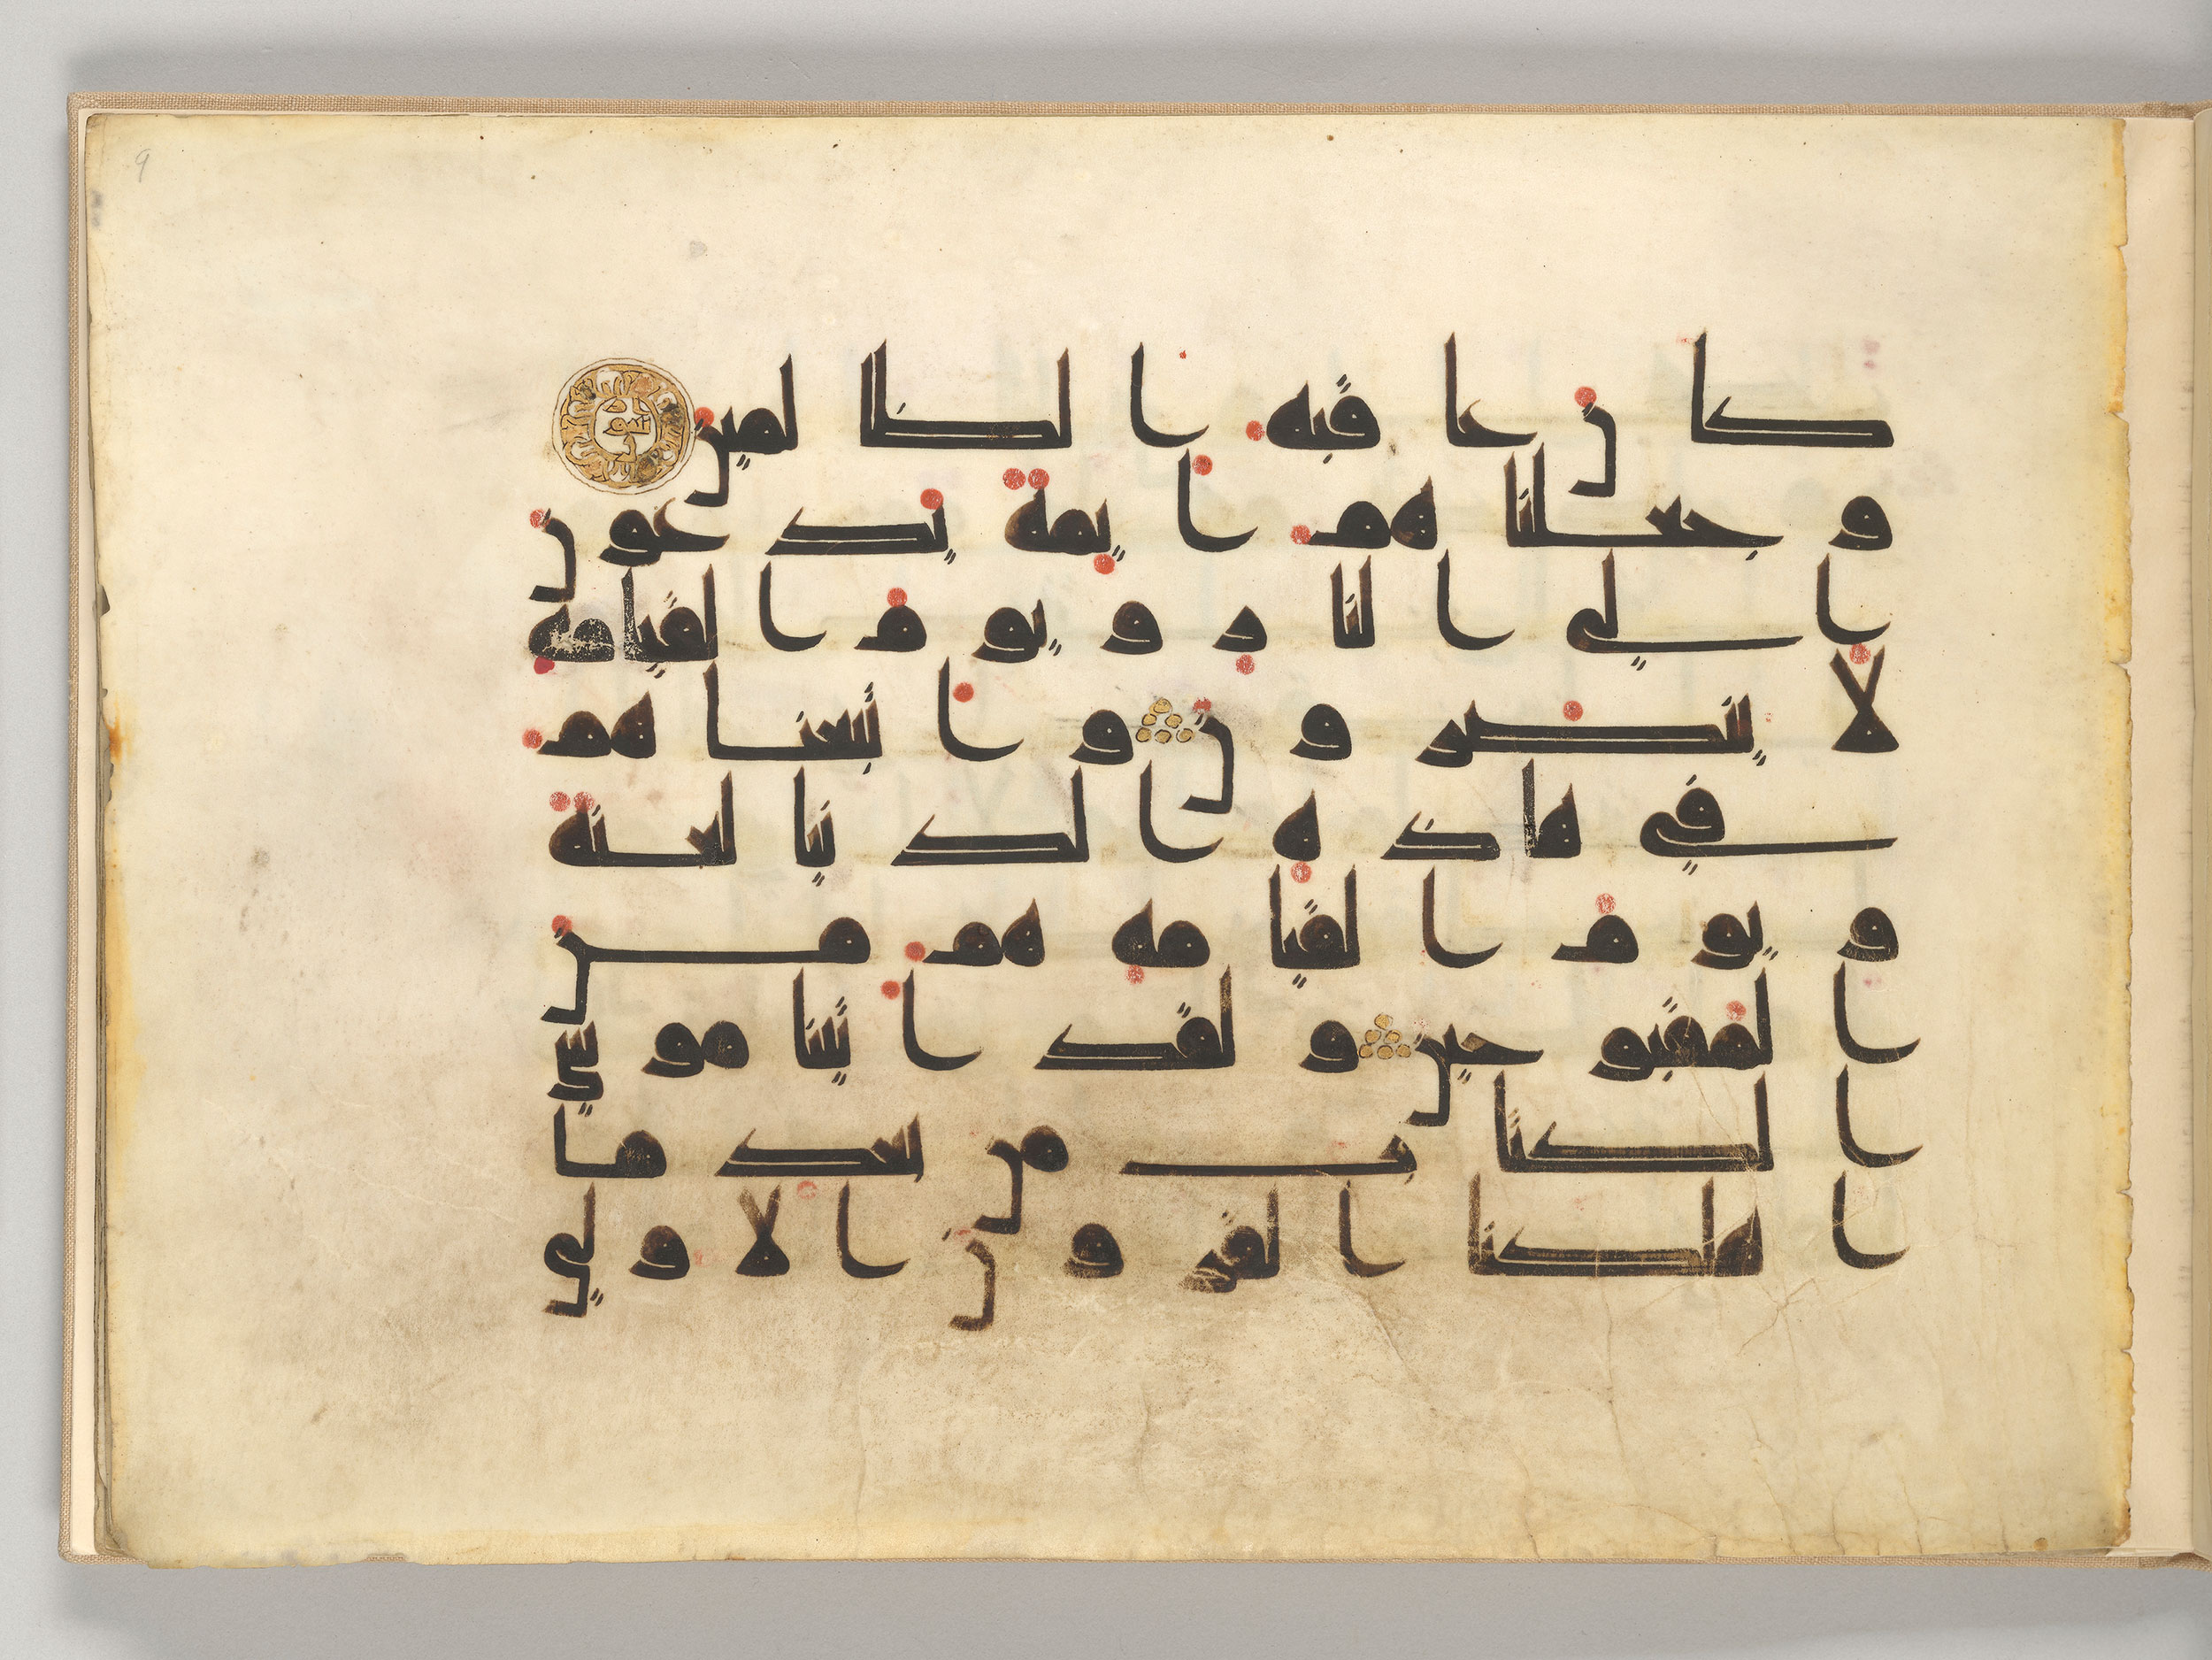 9
كان عاقبه الظالمين
وجعلناهم ايمة يدعون
الى النار ويوم القيامه
لا ينصرون واتبعناهم
في هاذه الدنيا لعنة
ويوم القيامه هم من
المقبوحين ولقد اتينا موسي
الكتاب من بعد ما
اهلكنا القرون الاولي